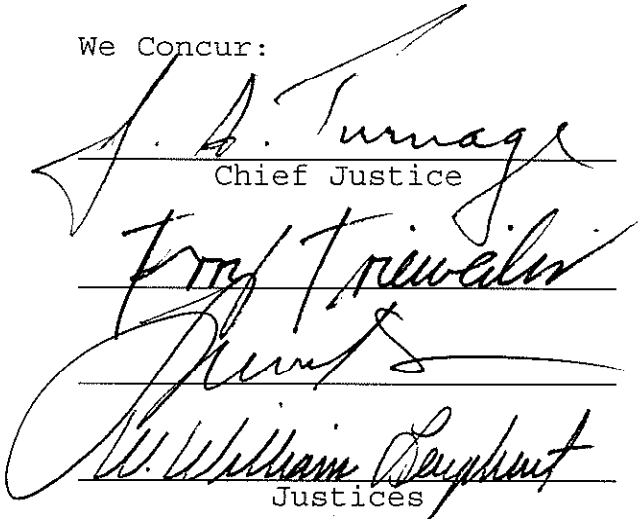 We Concur:
J. A. Turnage
Chief Justice
Terry Trieweiler
W. William Leaphart
Justices